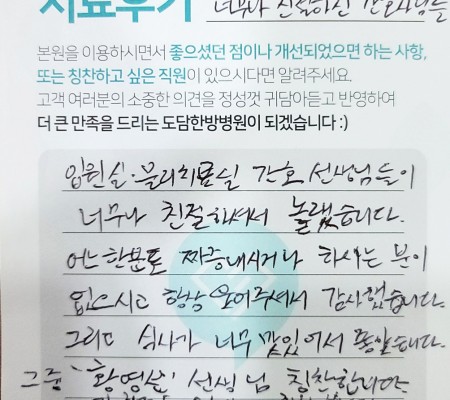 치료후기 너무나 친절하신 간호사님들
본원을 이용하시면서 좋으셨던 점이나 개선되었으면 하는 사항,
또는 칭찬하고 싶은 직원이 있으시다면 알려주세요.
고객 여러분의 소중한 의견을 정성껏 귀담아듣고 반영하여
더 큰 만족을 드리는 도담한방병원이 되겠습니다 :)
입원실·물리치료실 간호 선생님들이
너무나 친절하셔서 놀랬습니다.
어느 한분도 짜증내시거나 하시는 분이
없으시고 항상 웃어주셔서 감사했습니다.
그리고 식사가 너무 맛있어서 좋았습니다.
그중 '황영선' 선생님 칭찬합니다